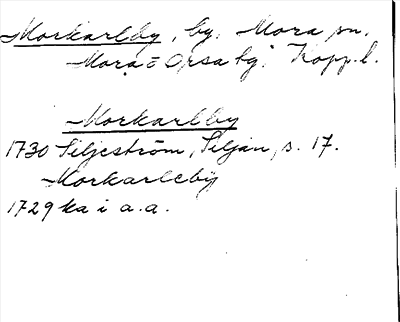 Morkarlby, by, Mora sn.
Mora o Orsa tg. Kopp.l.
Morkarlby
1730 Siljeström, Siljan, s. 17.
Morkarleby
1729 ka i a.a.